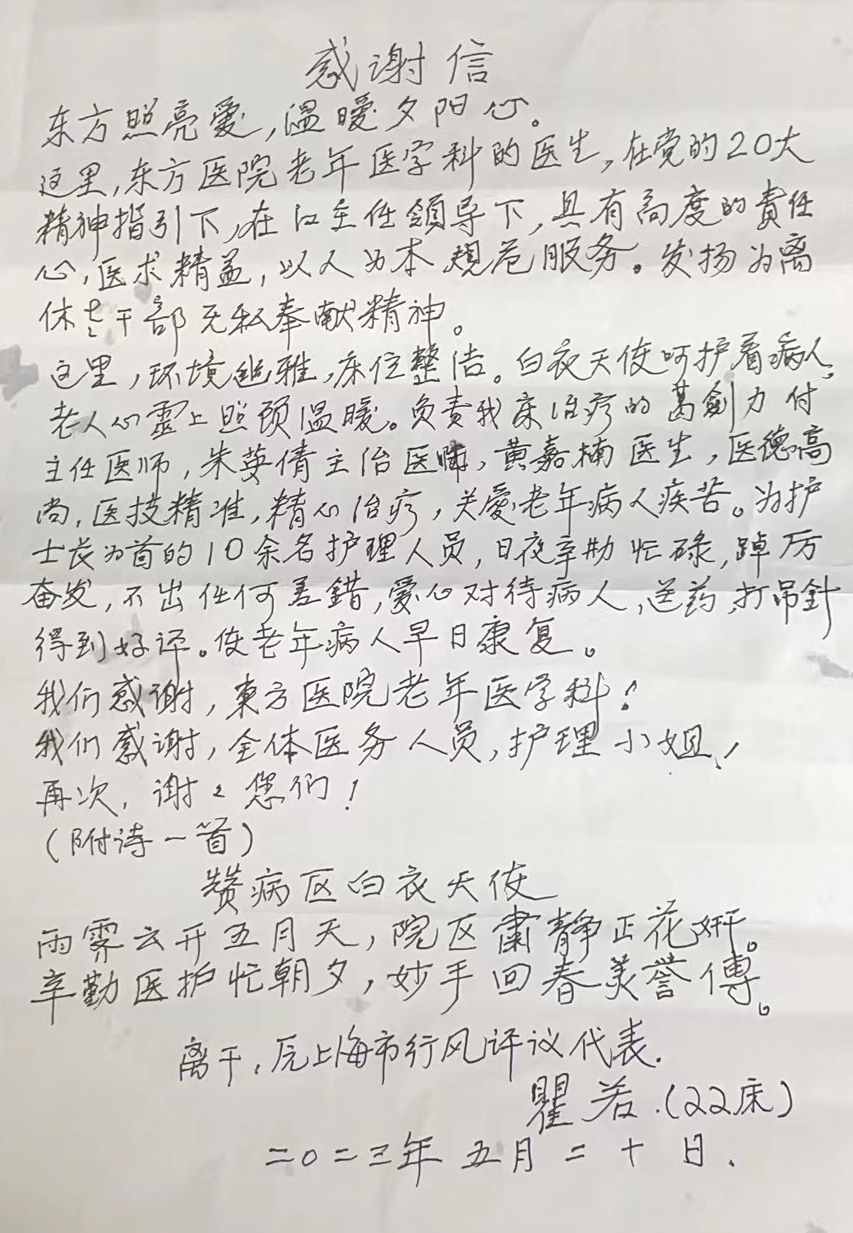 感谢信
东方照亮爱,温暖夕阳心。
这里,东方医院老年医学科的医生,在党的20大
精神指引下,在江主任領导下,具有高度的責任
心,医求精益,以人为本规范服务。发扬为离
休老干部无私奉献精神。
这里,环境幽雅,床位整洁。白衣天使呵护着病人,
老人心霊上照顾温暖。负责我床治疗的葛劍力付
主任医师,朱英倩主治医师,黄嘉楠医生,医德高
尚,医技精准,精心治疗,关爱老年病人疾苦。为护
士长为首的10余名护理人员,日夜辛勤忙碌,踔厉
奋发,不出任何差錯,爱心对待病人,送药,打吊針
得到好评。使老年病人早日康复。
我们感谢,東方医院老年医学科!
我们感谢,全体医务人员,护理小姐!
再次,谢々您们!
(附诗一首)
赞病区白衣天使
雨霁云开五月天,院区肃静正花妍。
辛勤医护忙朝夕,妙手回春美誉傳。
离干,原上海市行风评议代表.
瞿若.(22床)
二〇二三年五月二十日.